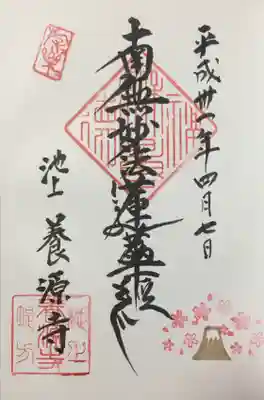 平成卅一年四月七日
南無妙法蓮華経
池上 養源寺